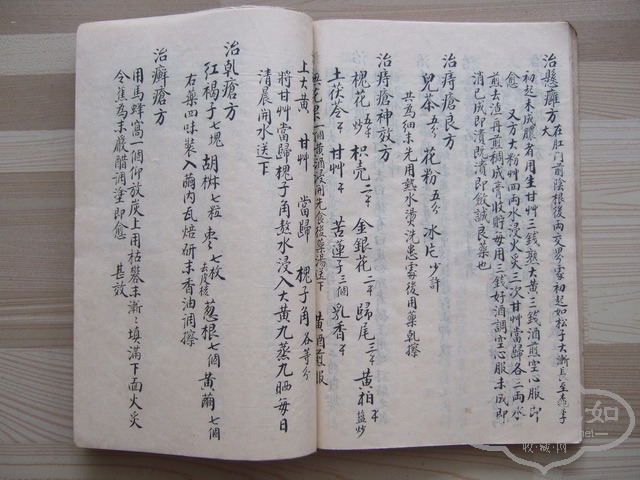 治懸癰方 在肛門前陰根後兩交界處初起如松子大漸長至桃李
大
初起未成膿者用生甘艸三錢熟大黃三錢酒煎空心服即
愈 又方大粉艸四兩水浸火炙三次甘艸當歸各三兩水
煎去渣再煎稠成膏收貯每用三錢好酒調空心服未成即
消已成即潰既潰即斂誠良藥也
治痔瘡良方
兒茶五分 花粉五分 冰片少許
共為細末先用熱水燙洗患處後用藥乾擦
治痔瘡神效方
槐花炒 枳壳二 金銀花二 歸尾三 黃柏盐炒
土茯苓 甘艸 苦蓮子三個 乳香
無花果 個 黃酒煎服
上大黃 甘艸 當歸 槐子角各等分
將甘艸當歸槐子角熬水浸入大黃九蒸九晒每日
清晨開水送下
治乾瘡方
紅褐子七塊 胡麻七粒 枣七枚去皮核 葱根七個 黃蘭七個
右藥四味裝入蘭內瓦焙研末香油調擦
治癬瘡方
用馬蜂窩一個仰放炭上用枯礬末漸漸填滿下面火炙
令焦為末嚴醋調塗即愈 甚效
收·藏·网